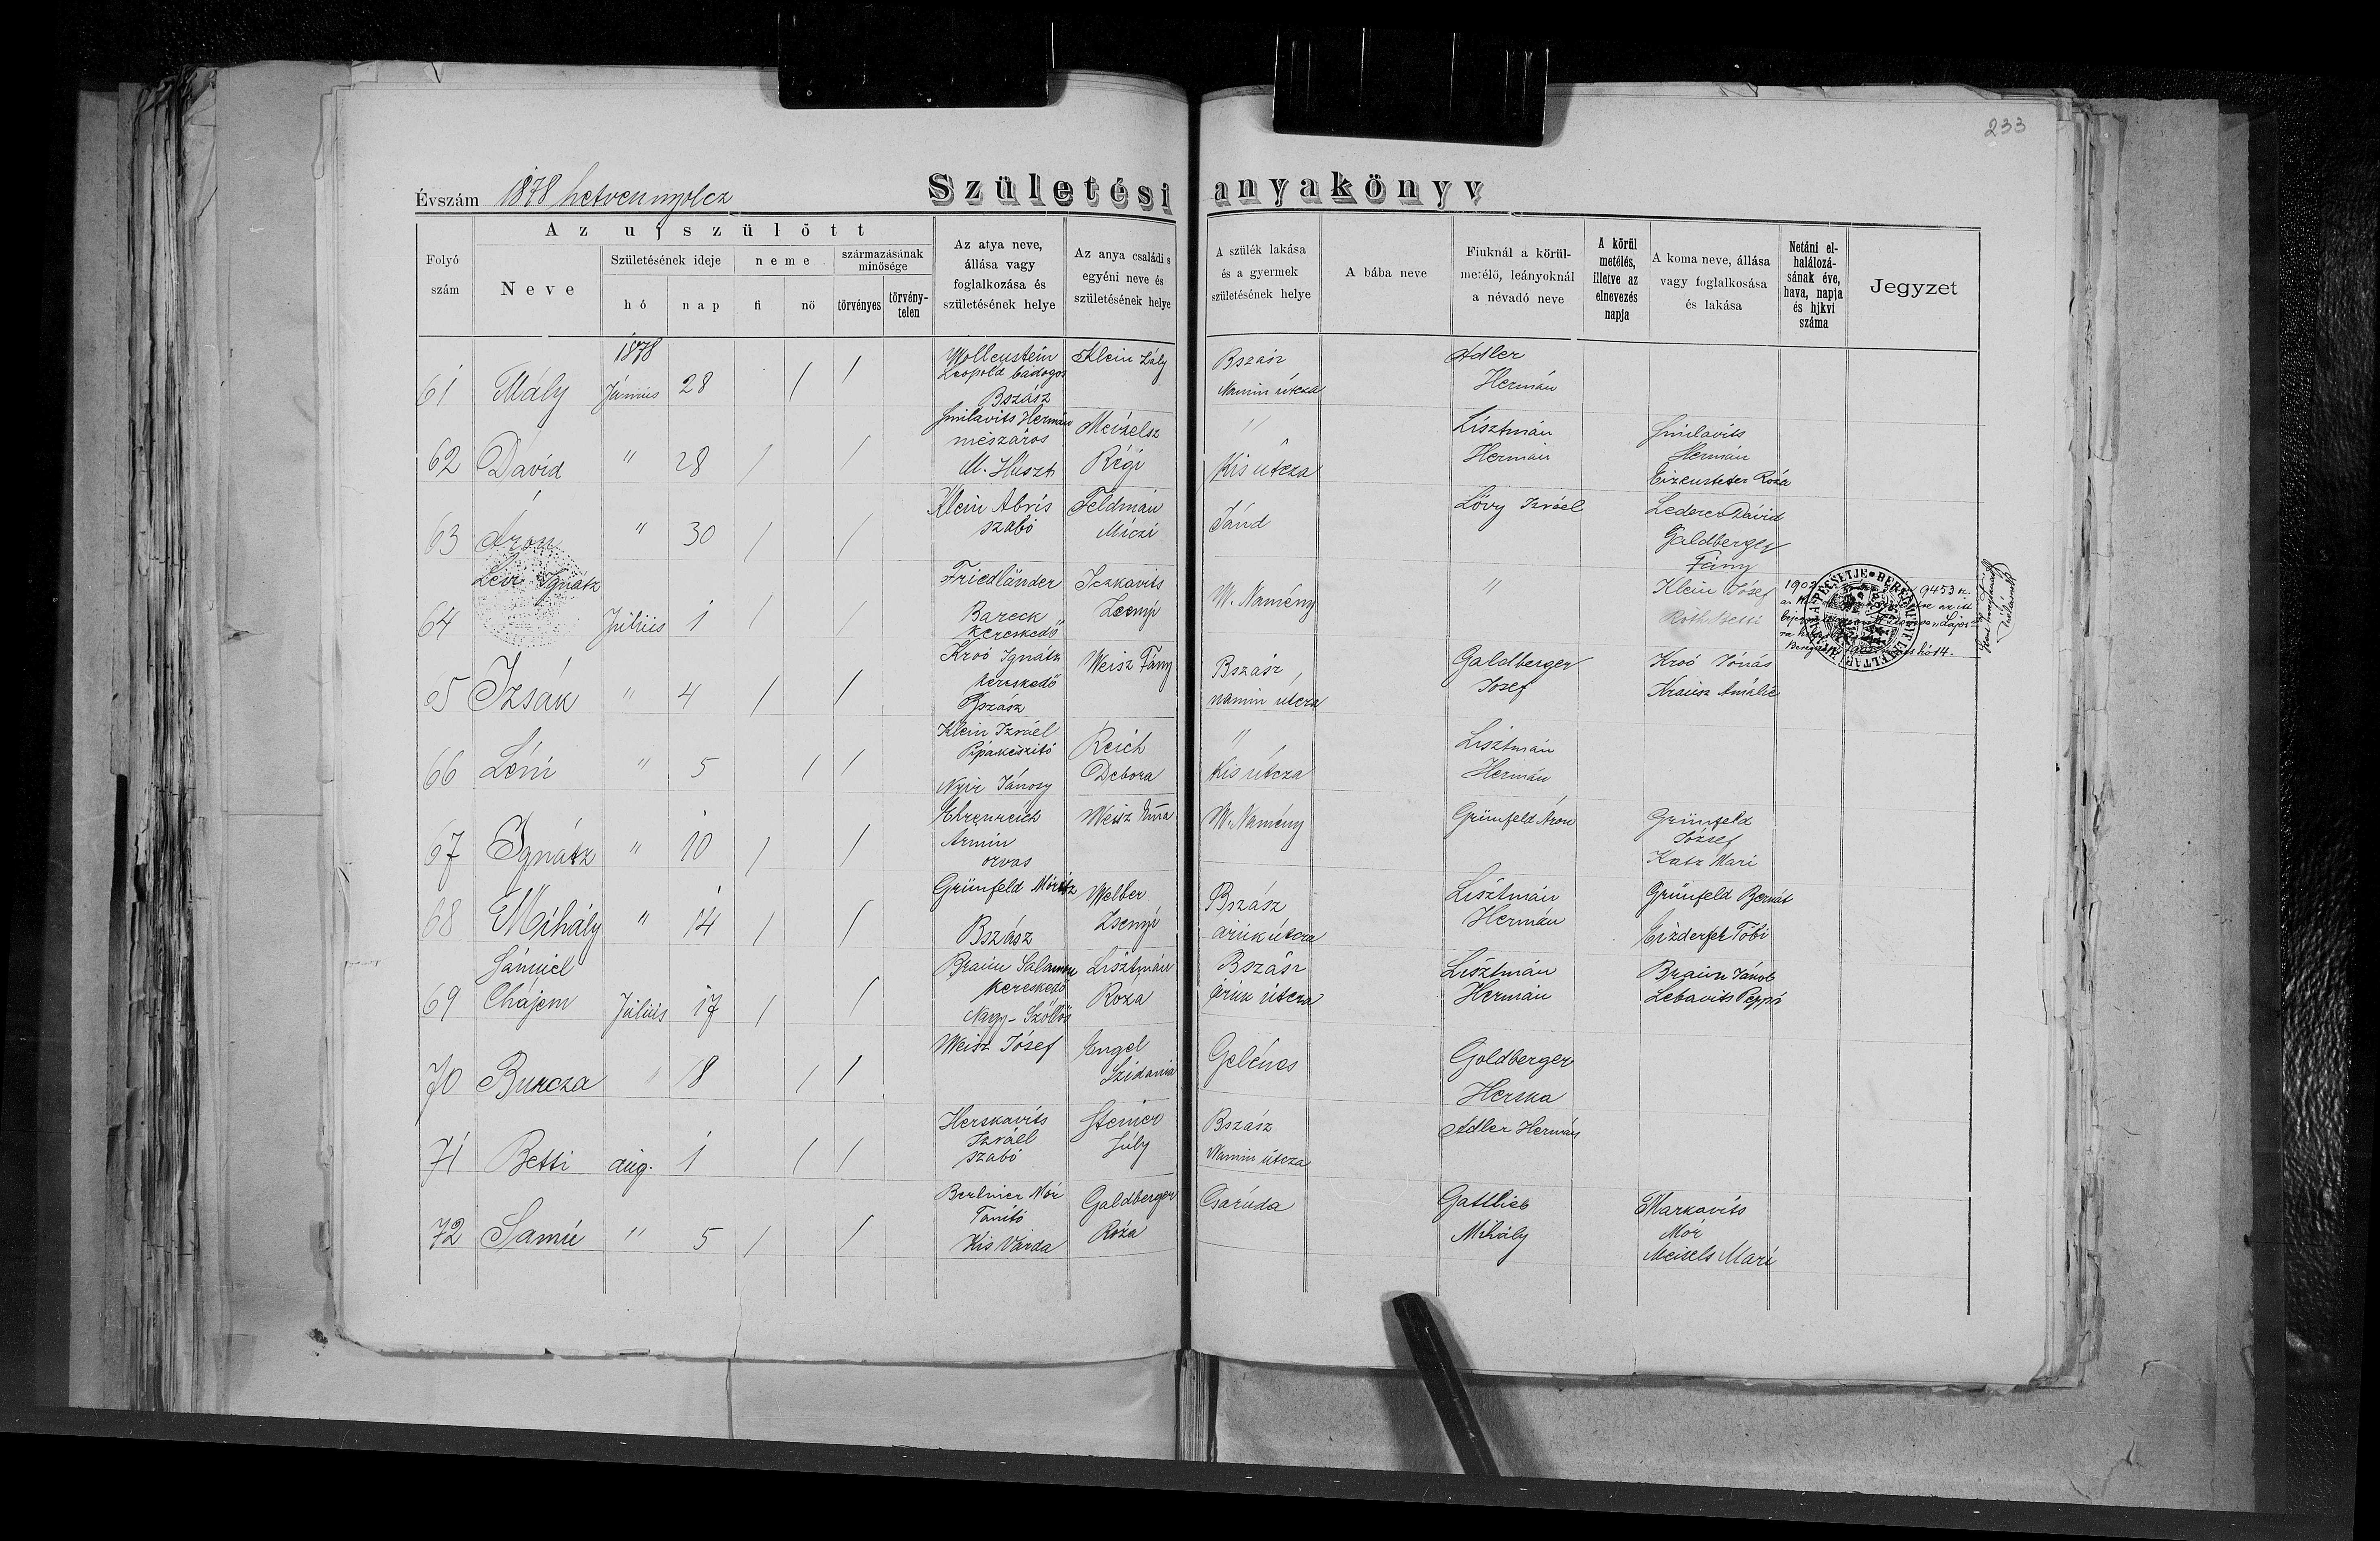 233
Évszám 1878 hetvennyolcz
Születési anyakönyv
Folyó szám
Az ujszülött
Neve
Születésének ideje
hó
nap
neme
fi
nő
származásának minősége
törvényes
törvény-telen
Az atya neve, állása vagy foglalkozása és születésének helye
Az anya családi s egyéni neve és születésének helye
A szülék lakása és a gyermek születésének helye
A bába neve
Fiuknál a körül-metélő, leányoknál a névadó neve
A körül metélés, illetve az elnevezés napja
A koma neve, állása vagy foglalkosása és lakása
Netáni el-halálozá-sának éve, hava, napja és hjkvi száma
Jegyzet
1878
61 Mály Június 28 / / Wollenstein Leopold bádogos Bszász Klein Zály Bszász Namin útcza Adler Hermán
62 David " 28 / / Smilavits Hermán mészáros M. Huszt Régi " Kis útcza Lisztmán Hermán Smilavits Hermán Róza
63 Áron " 30 / / Klein Abris szabó Feldmán Miczi Tánd Lövy Izráel Lederer Dávid Galdberger Fány
64 Ignátz Július 1 / / Friedländer Bareck kereskedő Iczkavits W. Namény " Klein Jósef Róth Betti 1902 9453
65 Izsák " 4 / / Kroó Ignátz kereskedő Bszász Weisz Fány Bszász namin útcza Galdberger Josef Kroó Jónás Krausz Amálie
66 Léni " 5 / / Klein Izráel Pipakészitő Nyir Reich Debora " Kis útcza Lisztmán Hermán
67 Ignátz " 10 / / Ehrenreich Armin orvas Weisz W. Namény Grünfeld Áron Grünfeld József Katz Mari
68 Mihály " 14 / / Grünfeld Móritz Bszász Welber Zsenyi Bszász arük útcza Lisztmán Hermán Grünfeld Bernát Tóbi
69 Sámuel Chájem Július 17 / / Braun Salamon kereskedő Nagy-Szöllös Lisztmán Roza Bszász arük útcza Lisztmán Hermán Braun Jánob Lebavits Peppi
70 Buncza " 18 / / Weisz Jósef Engel Szidania Gelénes Goldberger Herska
71 Betti aug. 1 / / Herskavits Izráel szabó Steiner Júly Bszász Namin útcza Adler Hermán
72 Samú " 5 / / Berliner Mór Tanító Kis Várda Galdberger Róza Csaróda Gattlieb Mihály Markavits Mór Meisels Mari